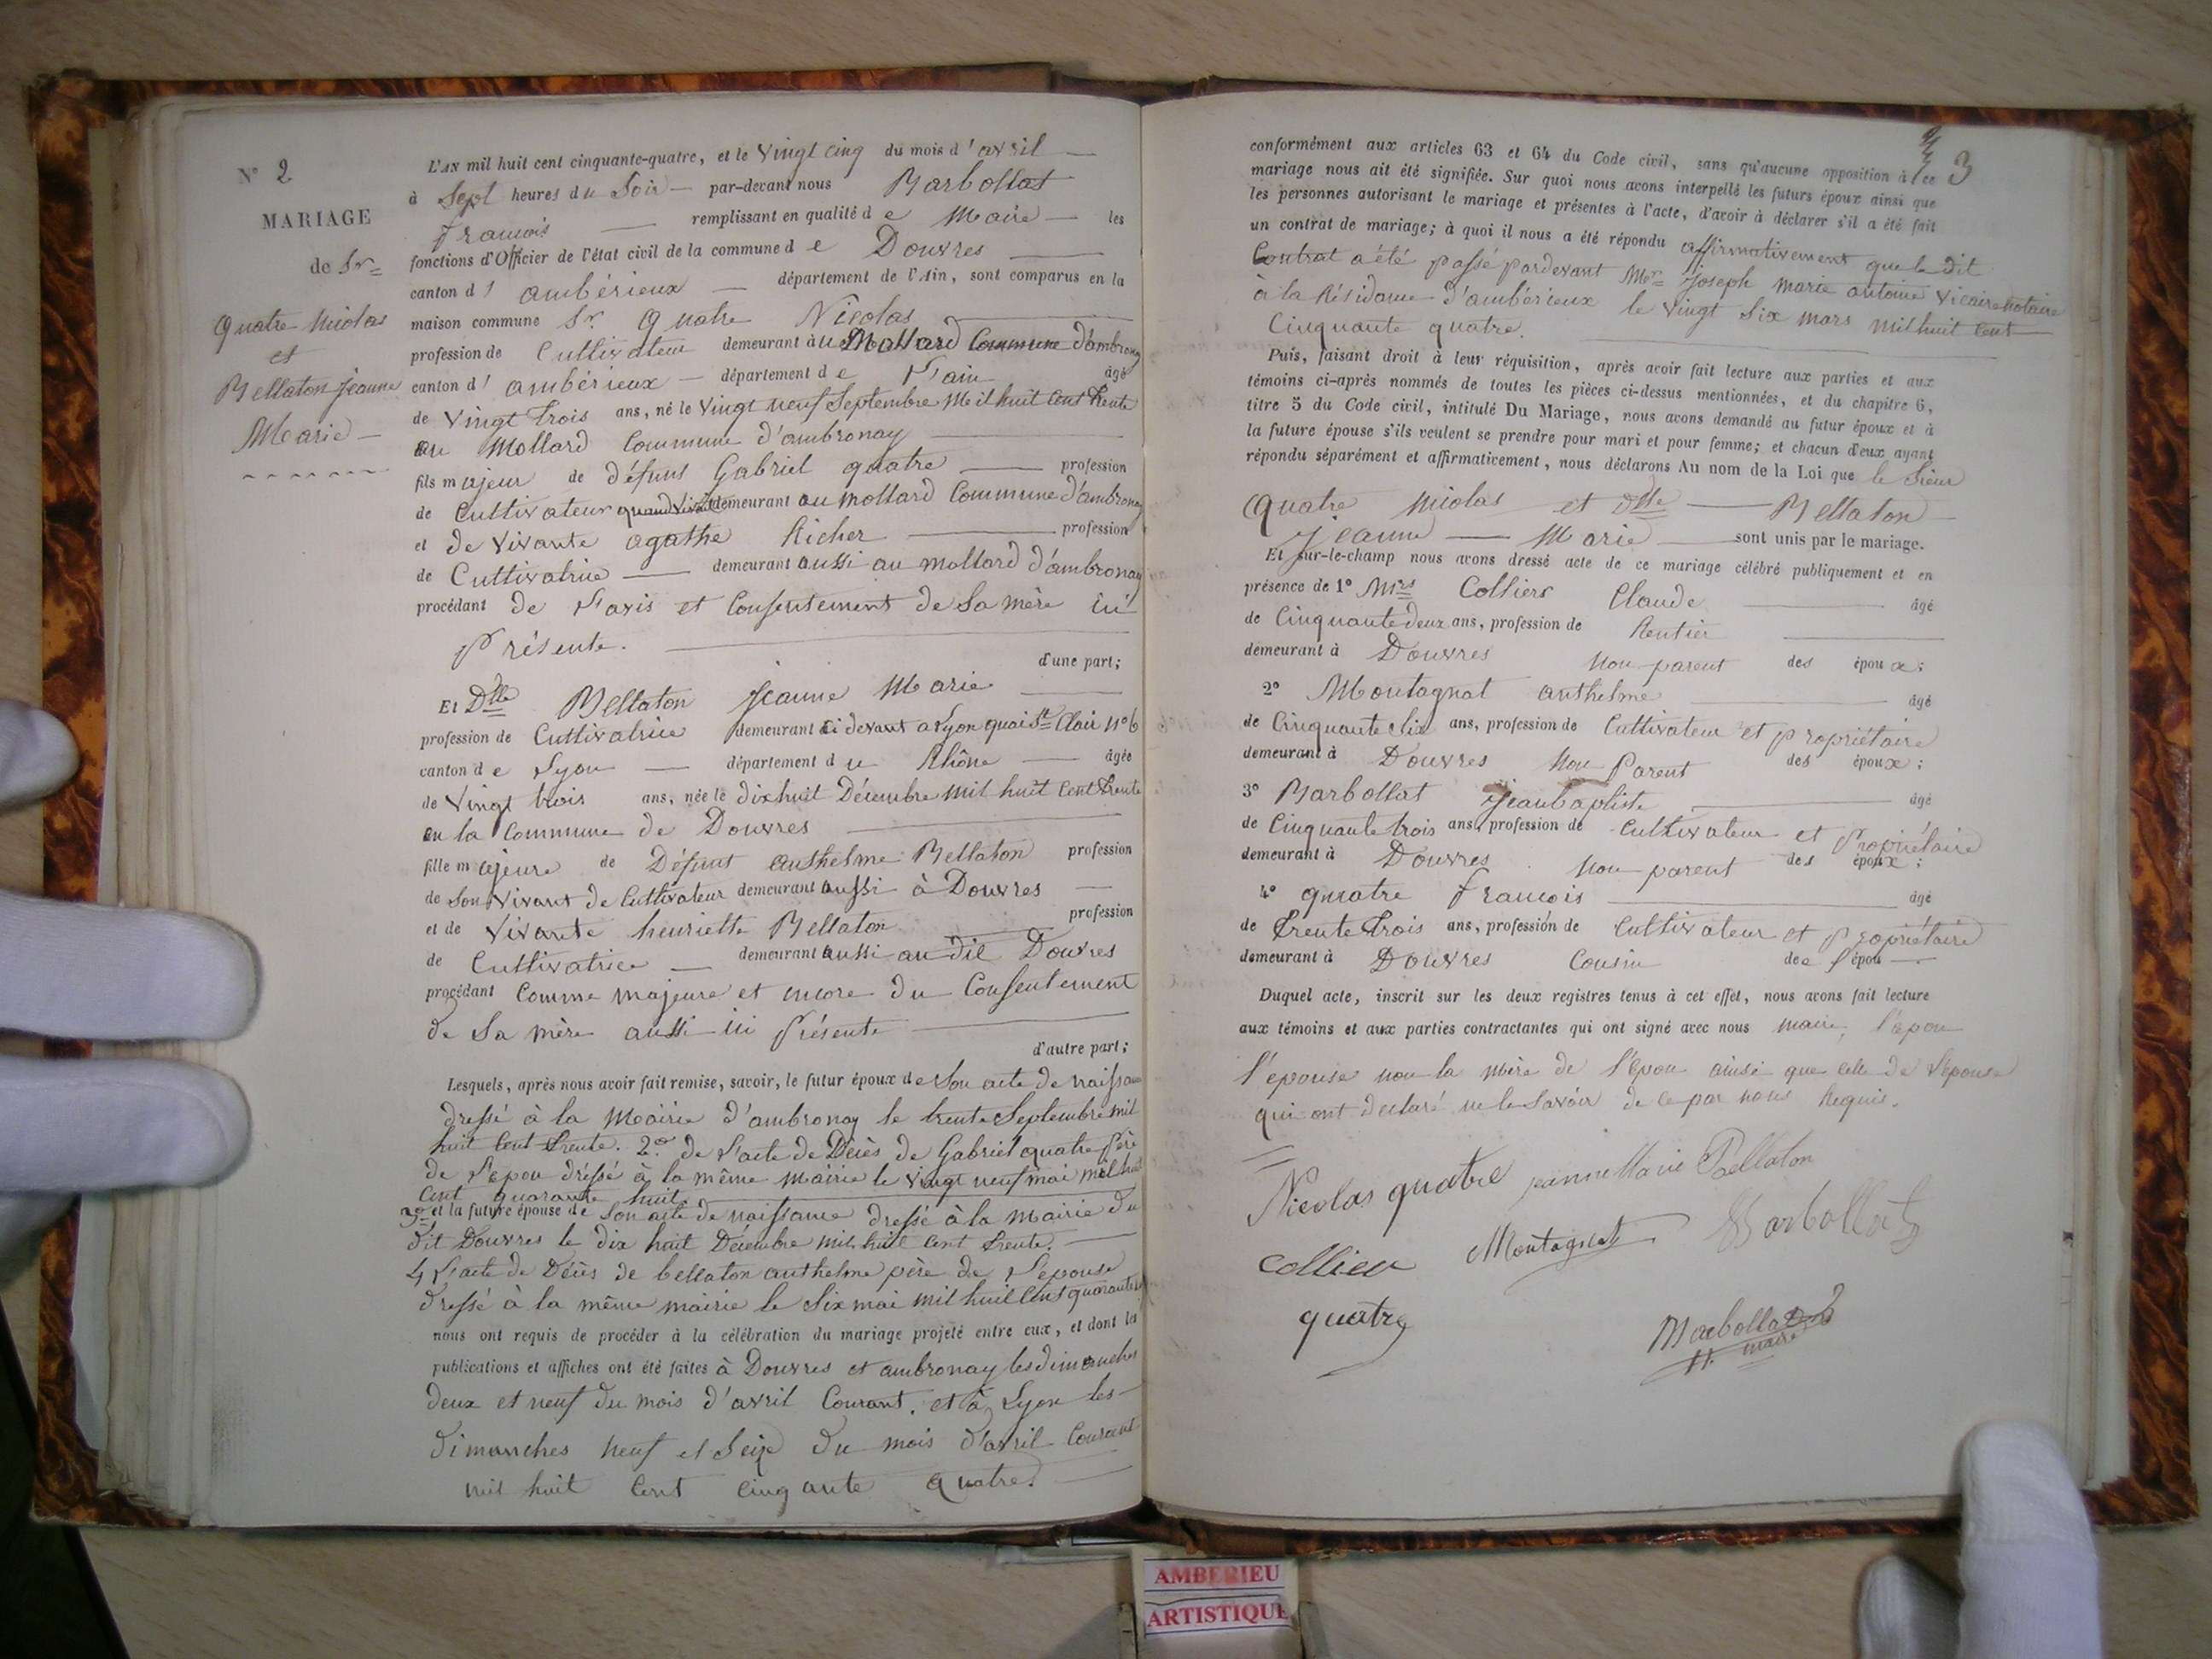 N° 2
MARIAGE
de Sr
Quatre Nicolas
et
Bellaton Jeanne
Marie
L'AN mil huit cent cinquante-quatre, et le vingt cinq du mois d'avril
à Sept heures du Soir par-devant nous Barbollat
francois remplissant en qualité de Maire les
fonctions d'Officier de l'état civil de la commune de Douvres
canton d'ambérieux département de l'Ain, sont comparus en la
maison commune Sr. Quatre Nicolas
profession de Cultivateur demeurant au Mollard Commune d'ambronay
canton d'ambérieux département de L'ain âgé
de Vingt trois ans, né le Vingt neuf Septembre Mil huit Cent trente
au Mollard Commune d'ambronay
fils majeur de défunt Gabriel quatre profession
de Cultivateur quand vivait demeurant au mollard Commune d'ambronay
et de vivante agathe Richer profession
de Cultivatrice demeurant aussi au mollard d'ambronay
procédant de L'avis et Consentement de Sa mère ici
Présente.
d'une part;
Et Dlle Bellaton Jeanne Marie
profession de Cultivatrice demeurant ci devant a Lyon quai St Clair N° 6
canton de Lyon département du Rhône âgée
de Vingt trois ans, née le dix huit Décembre mil huit Cent trente
en la Commune de Douvres
fille majeure de Défunt anthelme Bellaton profession
de son Vivant de Cultivateur demeurant aussi à Douvres
et de Vivante henriette Bellaton profession
de Cultivatrice demeurant aussi au dit Douvres
procédant Comme majeure et encore du Consentement
de Sa mère aussi ici Présente
d'autre part;
Lesquels, après nous avoir fait remise, savoir, le futur époux de Son acte de naissance
dressé à la Mairie d'ambronay le trente Septembre mil
huit Cent trente. 2° de L'acte de Décès de Gabriel quatre père
de L'epou dréssé à la même mairie le Vingt neuf mai mil huit
Cent quarante huit.
3° et la future épouse de Son acte de naissance dressé à la mairie du
dit Douvres le dix huit Décembre mil huit Cent trente.
4 L'acte de Décès de bellaton anthelme père de L'épouse
dressé à la même mairie le Six mai mil huit Cent quarante
nous ont requis de procéder à la célébration du mariage projeté entre eux, et dont les
publications et affiches ont été faites à Douvres et ambronay les dimanches
deux et neuf du mois d'avril Courant. et à Lyon les
dimanches neuf et Seize du mois d'avril Courant
mil huit Cent cinq ante quatre.
3
conformément aux articles 63 et 64 du Code civil, sans qu'aucune opposition à ce
mariage nous ait été signifiée. Sur quoi nous avons interpellé les futurs époux ainsi que
les personnes autorisant le mariage et présentes à l'acte, d'avoir à déclarer s'il a été fait
un contrat de mariage; à quoi il nous a été répondu affirmativement que le dit
Contrat a été passé pardevant Mer Joseph marie antoine Vicaire notaire
à la Résidance d'ambérieux le vingt Six mars mil huit Cent
Cinquante quatre.
Puis, faisant droit à leur réquisition, après avoir fait lecture aux parties et aux
témoins ci-après nommés de toutes les pièces ci-dessus mentionnées, et du chapitre 6,
titre 5 du Code civil, intitulé Du Mariage, nous avons demandé au futur époux et à
la future épouse s'ils veulent se prendre pour mari et pour femme; et chacun d'eux ayant
répondu séparément et affirmativement, nous déclarons Au nom de la Loi que le Sieur
Quatre Nicolas et Dlle Bellaton
Jeanne Marie sont unis par le mariage.
Et sur-le-champ nous avons dressé acte de ce mariage célébré publiquement et en
présence de 1° Mrs Colliers Claude âgé
de Cinquante deux ans, profession de Rentier
demeurant à Douvres Non parent des époux;
2° Montagnat anthelme âgé
de Cinquante Six ans, profession de Cultivateur et propriétaire
demeurant à Douvres Non Parent des époux;
3° Barbollat Jeanbaptiste âgé
de Cinquante trois ans, profession de Cultivateur et Propriétaire
demeurant à Douvres Non parent des époux;
4° quatre francois âgé
de trente trois ans, profession de Cultivateur et propriétaire
demeurant à Douvres Cousin de l'épou
Duquel acte, inscrit sur les deux registres tenus à cet effet, nous avons fait lecture
aux témoins et aux parties contractantes qui ont signé avec nous maire, l'epou
l'epouse non la mère de l'épou ainsi que celle de l'épouse
qui ont declaré ne le Savoir de ce par nous Requis.
Nicolas quatre jeanne Marie Bellaton
collier Montagnat Barbollat
quatre Barbollat
maire
AMBERIEU
ARTISTIQUE